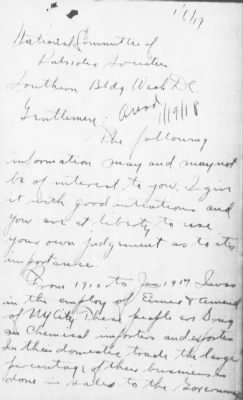 1/6/19
National Committee of
Patriotic Societies
Southern Bldg. Wash DC
Gentlemen: Answd 1/19/18
The following
information may and may not
be of interest to you. I give
it with good intentions and
you are at liberty to use
your own judgement as to its
importance.
From 1910 to Jan 1917 I was
in the employ of Eimer & Amend
of NY City. These people as Drug
and Chemical importers and exporters
In their domestic trade the large
percentage of their business is
done in sales to the Government